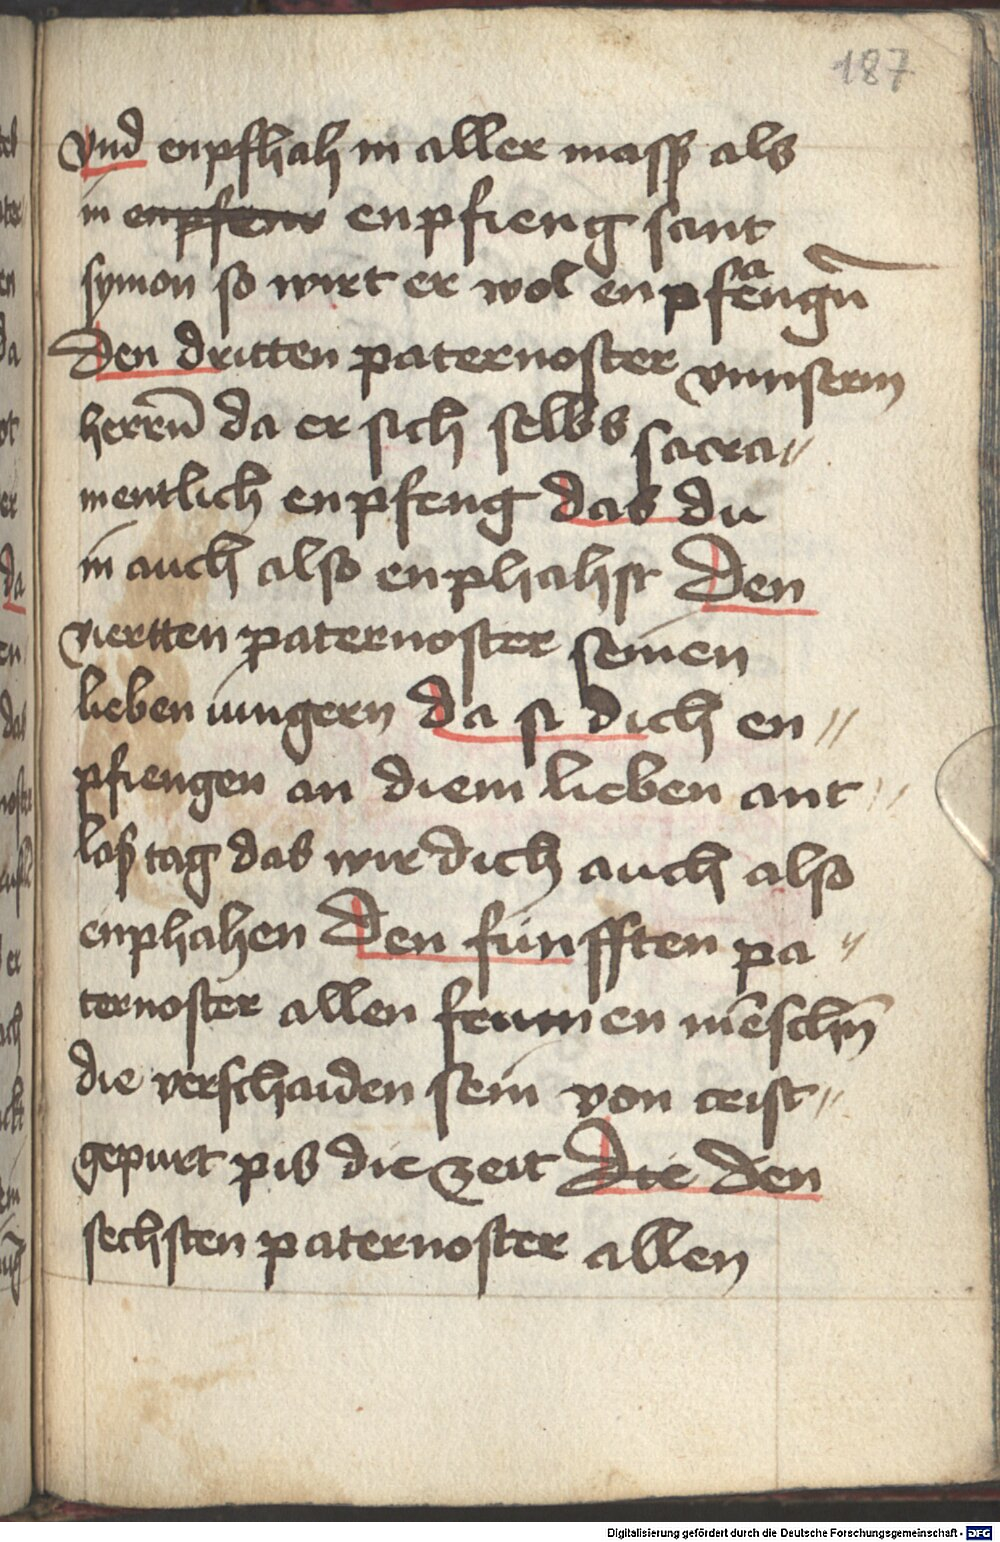 187
vnd enpfhah in aller massz als
in enpfenr enpfieng sant
symon so wirt er wol enpfangn̄
Den dritten paternoster vnnserm
herrn̄ da er sich selbs sacra〃
mentlich enpfeng das du
in auch also enphahst Den
viertten paternoster seinen
lieben iungern da si dich en〃
pfiengen an diem lieben ant〃
lasz tag das wir dich auch also
enphahen Den funfften pa〃
ternoster allen frumen mēschn̄
die verschaiden sein von crist〃
gepurt pis die zeit Die Den
sechsten paternoster allen
Digitalisierung gefördert durch die Deutsche Forschungsgemeinschaft - DFG